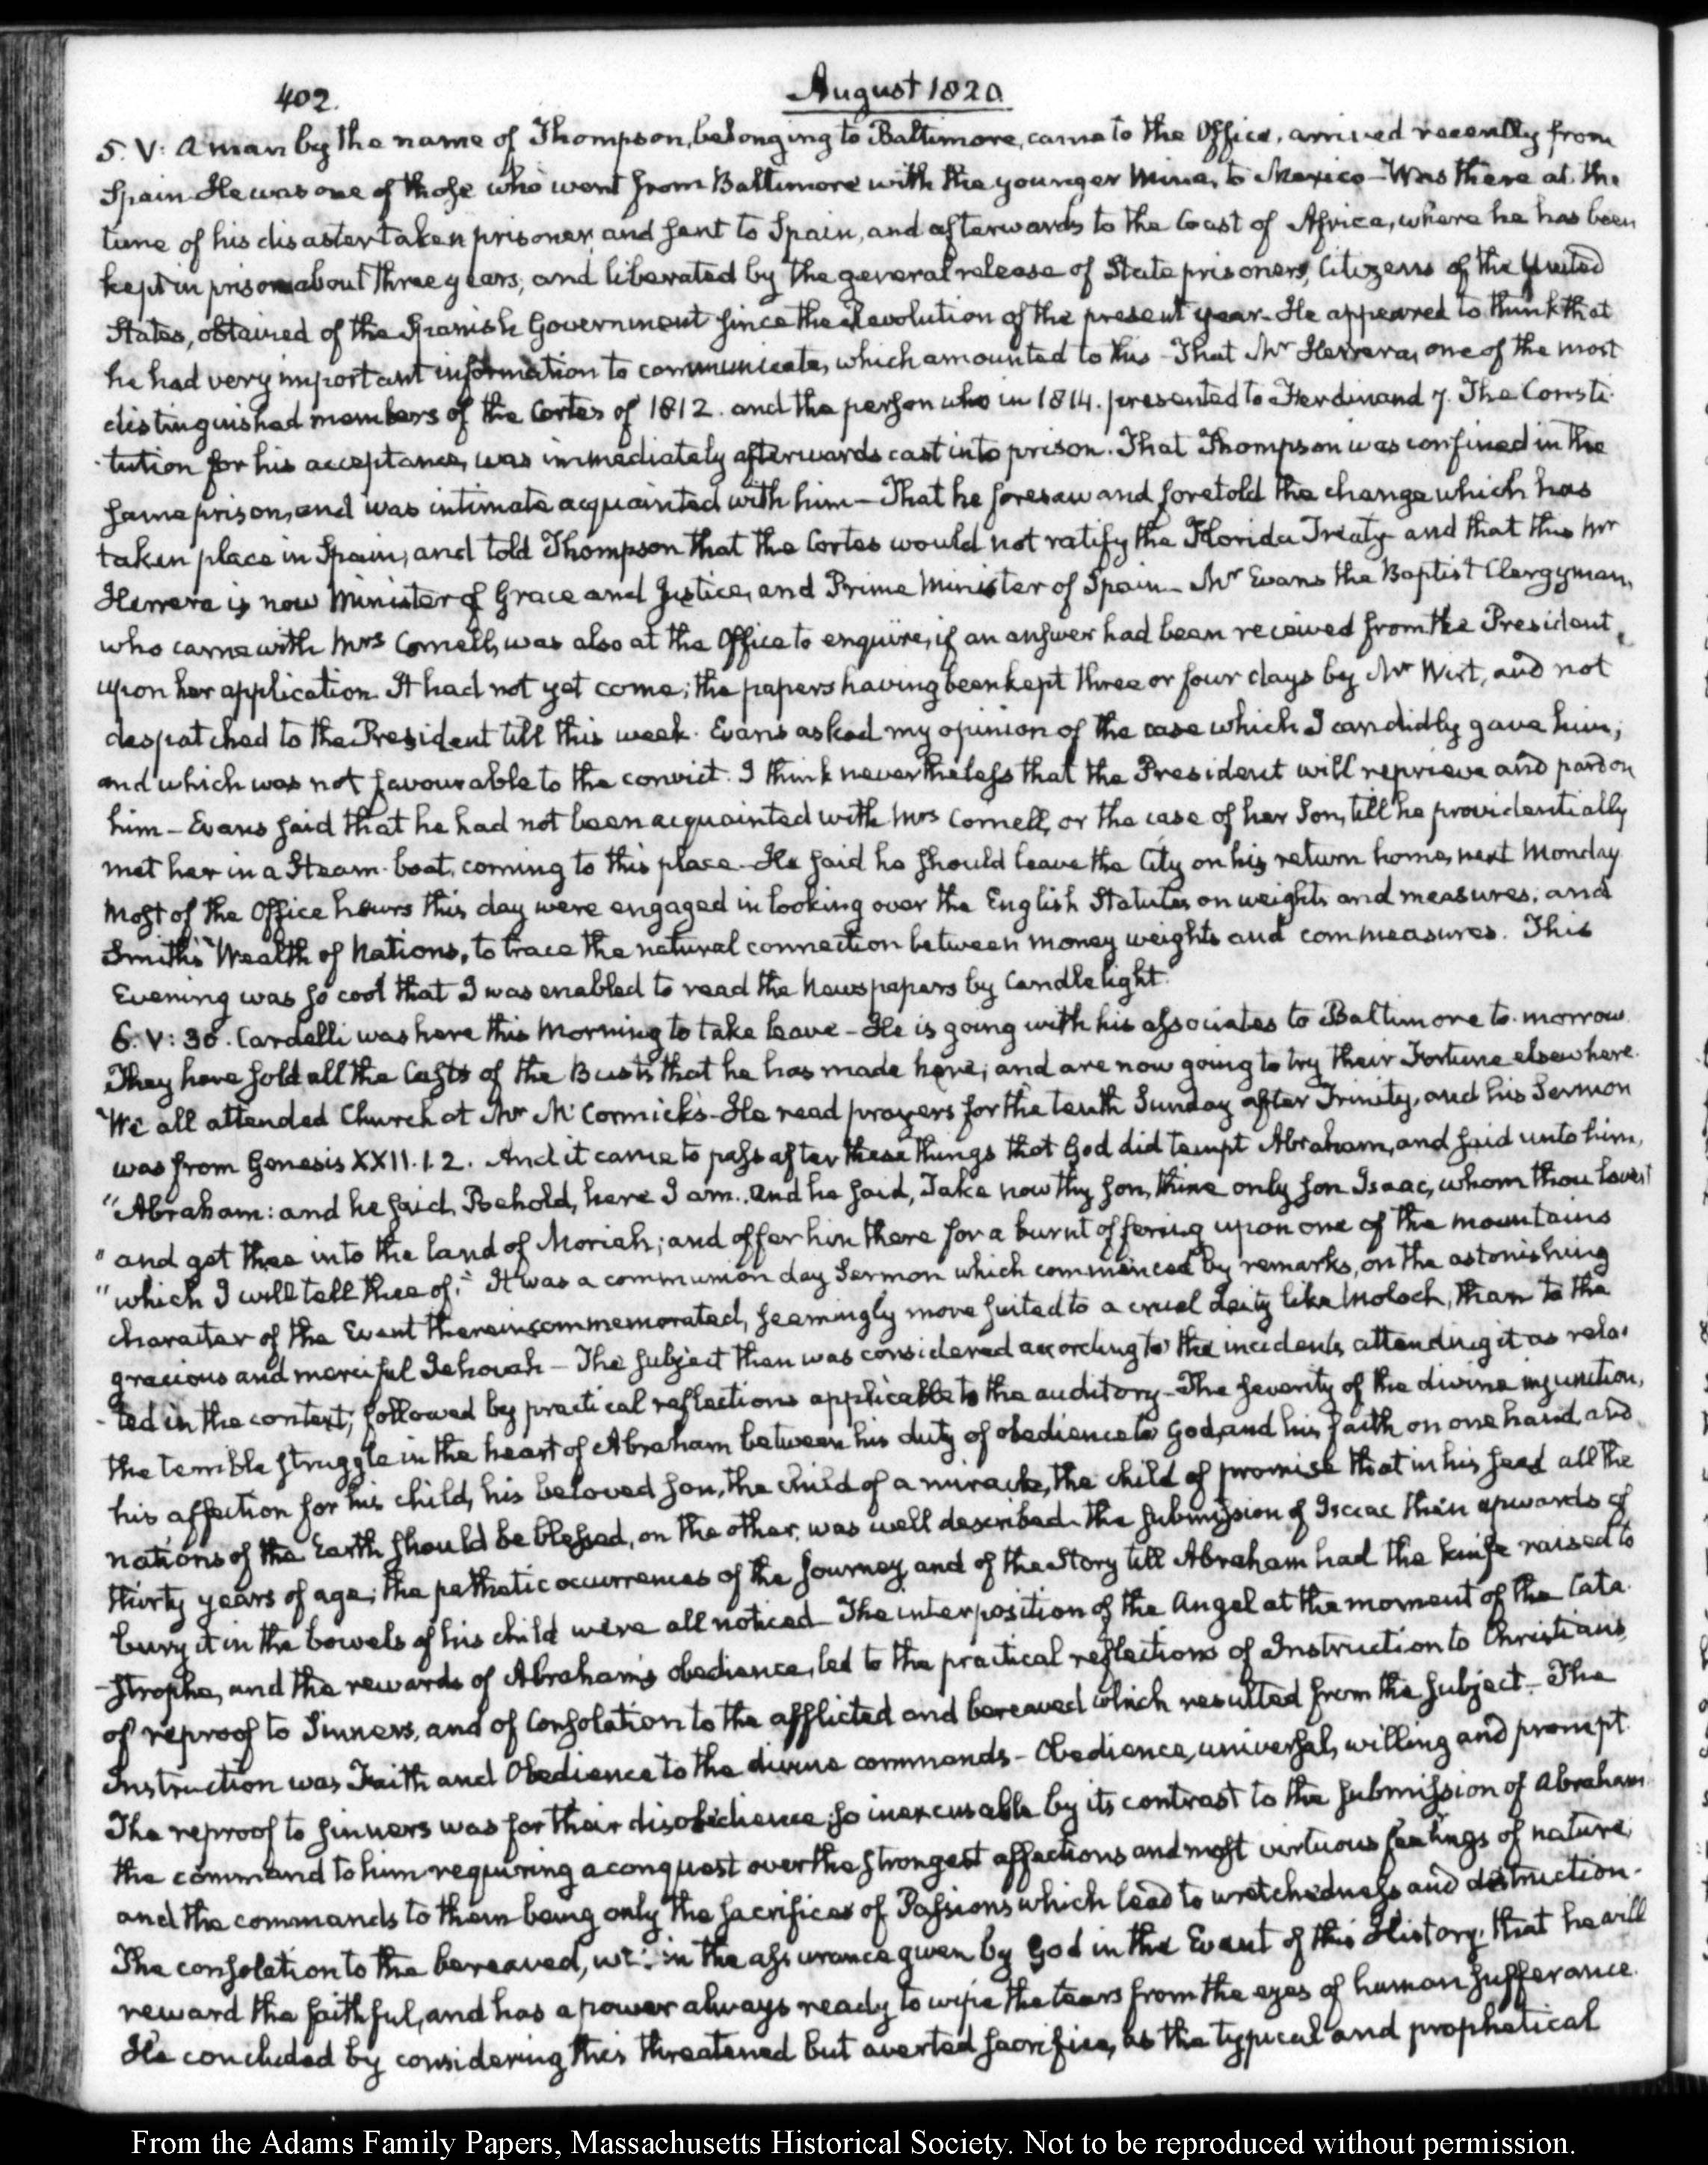 402.
August 1820.
5. V: A man by the name of Thompson, belonging to Baltimore, came to the Office, arrived recently from
Spain. He was one of those who went from Baltimore with the younger Mina, to Mexico — Was there at the
time of his disaster taken prisoner, and sent to Spain, and afterwards to the Coast of Africa, where he has been
kept in prison about three years, and liberated by the general release of State prisoners, Citizens of the United
States, obtained of the Spanish Government since the Revolution of the present year. He appeared to think that
he had very important information to communicate, which amounted to this — That Mr Herrera, one of the most
distinguished members of the Cortes of 1812. and the person who in 1814. presented to Ferdinand 7. The Consti-
-tution for his acceptance, was immediately afterwards cast into prison. That Thompson was confined in the
same prison, and was intimate acquainted with him — That he foresaw and foretold the change which has
taken place in Spain, and told Thompson that the Cortes would not ratify the Florida Treaty and that this Mr
Herrera is now Minister of Grace and Justice, and Prime Minister of Spain — Mr Evans the Baptist Clergyman,
who came with Mrs Cornell, was also at the Office to enquire, if an answer had been received from the President,
upon her application. It had not yet come; the papers having been kept three or four days by Mr Wirt, and not
despatched to the President till this week. Evans asked my opinion of the case which I candidly gave him;
and which was not favourable to the convict. I think nevertheless that the President will reprieve and pardon
him — Evans said that he had not been acquainted with Mrs Cornell, or the case of her Son, till he providentially
met her in a Steam-boat, coming to this place. He said he should leave the City on his return home, next Monday.
Most of the Office hours this day were engaged in looking over the English Statutes on weights and measures; and
Smith's Wealth of Nations, to trace the natural connection between money weights and commeasures. This
Evening was so cool that I was enabled to read the Newspapers by Candle light.
6. V: 30. Cardelli was here this Morning to take leave — He is going with his associates to Baltimore to-morrow.
They have sold all the Casts of the Busts that he has made here; and are now going to try their Fortune elsewhere.
We all attended Church at Mr McCormick's — He read prayers for the tenth Sunday after Trinity, and his Sermon
was from Genesis XXII. 1. 2. And it came to pass after these things that God did tempt Abraham, and said unto him,
"Abraham: and he said, Behold, here I am. And he said, Take now thy son, thine only son Isaac, whom thou lovest
"and get thee into the land of Moriah; and offer him there for a burnt offering upon one of the mountains
"which I will tell thee of." It was a communion day Sermon which commenced by remarks, on the astonishing
character of the Event therein commemorated, seemingly more suited to a cruel deity like Moloch, than to the
gracious and merciful Jehovah — The subject then was considered according to the incidents attending it as rela-
-ted in the context; followed by practical reflections applicable to the auditory — The severity of the divine injunction,
the terrible struggle in the heart of Abraham between his duty of obedience to God, and his faith on one hand, and
his affection for his child, his beloved son, the child of a miracle, the child of promise that in his seed all the
nations of the Earth should be blessed, on the other, was well described — the submission of Isaac then upwards of
thirty years of age; the pathetic occurrences of the Journey, and of the Story till Abraham had the knife raised to
bury it in the bowels of his child were all noticed — The interposition of the Angel at the moment of the Cata-
-strophe, and the rewards of Abraham's obedience, led to the practical reflections of Instruction to Christians,
of reproof to Sinners, and of Consolation to the afflicted and bereaved which resulted from the subject — The
Instruction was Faith and Obedience to the divine commands — Obedience, universal, willing and prompt.
The reproof to sinners was for their disobedience, so inexcusable by its contrast to the submission of Abraham
the command to him requiring a conquest over the strongest affections and most virtuous feelings of nature;
and the commands to them being only the sacrifices of Passions which lead to wretchedness and destruction.
The consolation to the bereaved, was in the assurance given by God in the Event of this History, that he will
reward the faithful, and has a power always ready to wipe the tears from the eyes of human sufferance.
He concluded by considering this threatened but averted sacrifice, as the typical and prophetical
From the Adams Family Papers, Massachusetts Historical Society. Not to be reproduced without permission.